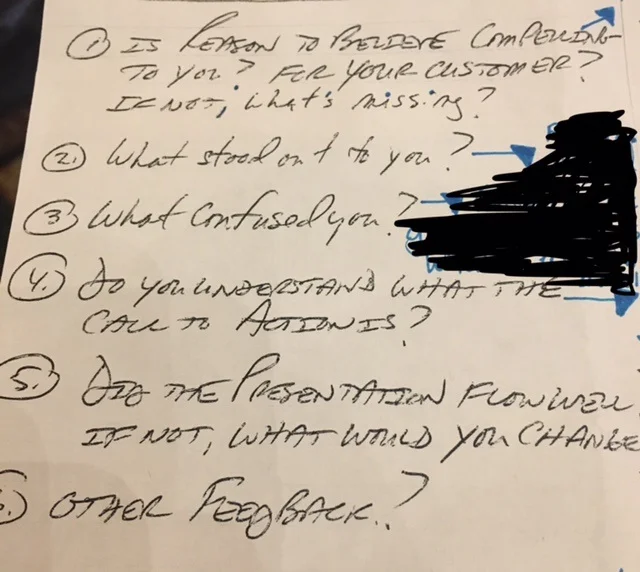 ① Is Reason to Believe Compelling
to you? For your customer?
If not, what's missing?
②. What stood out to you?
③ What confused you?
④. Do you understand what the
Call to Action is?
⑤. Did the Presentation flow well
If not, what would you change
Other Feedback.?